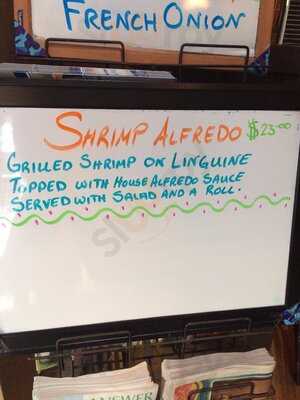 FRENCH ONION
SHRIMP ALFREDO $23.00
GRILLED SHRIMP ON LINGUINE
TOPPED WITH HOUSE ALFREDO SAUCE
SERVED WITH SALAD AND A ROLL.
ANSWER